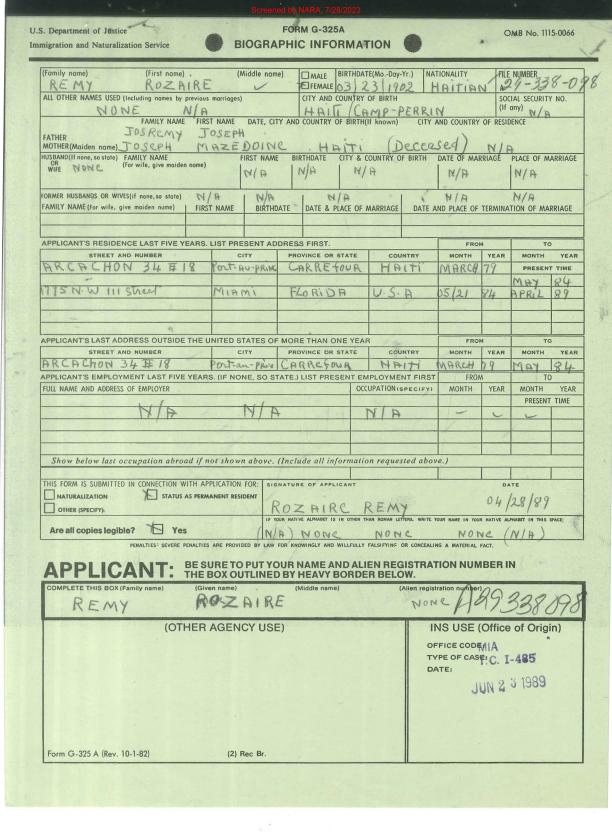 Screened by NARA, 7/28/2023
U.S. Department of Justice
Immigration and Naturalization Service
FORM G-325A
BIOGRAPHIC INFORMATION
OMB No. 1115-0066
(Family name) (First name) (Middle name) MALE FEMALE BIRTHDATE(Mo.-Day-Yr.) NATIONALITY FILE NUMBER
REMY ROZAIRE 03/23/1902 HAITIAN A29-338-098
ALL OTHER NAMES USED (Including names by previous marriages) CITY AND COUNTRY OF BIRTH SOCIAL SECURITY NO. (If any)
NONE N/A HAITI/CAMP-PERRIN N/A
FAMILY NAME FIRST NAME DATE, CITY AND COUNTRY OF BIRTH(If known) CITY AND COUNTRY OF RESIDENCE
FATHER JOSREMY JOSEPH
MOTHER(Maiden name) JOSEPH MAZEDOINE HAITI (Deceased) N/A
HUSBAND(If none, so state) OR WIFE FAMILY NAME (For wife, give maiden name) FIRST NAME BIRTHDATE CITY & COUNTRY OF BIRTH DATE OF MARRIAGE PLACE OF MARRIAGE
NONE N/A N/A N/A N/A N/A
FORMER HUSBANDS OR WIVES(if none, so state) N/A N/A N/A N/A N/A
FAMILY NAME (For wife, give maiden name) FIRST NAME BIRTHDATE DATE & PLACE OF MARRIAGE DATE AND PLACE OF TERMINATION OF MARRIAGE
APPLICANT'S RESIDENCE LAST FIVE YEARS. LIST PRESENT ADDRESS FIRST. FROM TO
STREET AND NUMBER CITY PROVINCE OR STATE COUNTRY MONTH YEAR MONTH YEAR
ARCACHON 34 #18 Port-au-Prince CARREFOUR HAITI MARCH 79 PRESENT TIME
MAY 84
1775 N.W 111 Street MIAMI FLORIDA U.S.A 05/21 84 APRIL 89
APPLICANT'S LAST ADDRESS OUTSIDE THE UNITED STATES OF MORE THAN ONE YEAR FROM TO
STREET AND NUMBER CITY PROVINCE OR STATE COUNTRY MONTH YEAR MONTH YEAR
ARCACHON 34 #18 Port-au-Prince CARREFOUR HAITI MARCH 79 MAY 84
APPLICANT'S EMPLOYMENT LAST FIVE YEARS. (IF NONE, SO STATE.) LIST PRESENT EMPLOYMENT FIRST FROM TO
FULL NAME AND ADDRESS OF EMPLOYER OCCUPATION(SPECIFY) MONTH YEAR MONTH YEAR
PRESENT TIME
N/A N/A N/A
Show below last occupation abroad if not shown above. (Include all information requested above.)
THIS FORM IS SUBMITTED IN CONNECTION WITH APPLICATION FOR: SIGNATURE OF APPLICANT DATE
NATURALIZATION STATUS AS PERMANENT RESIDENT
OTHER (SPECIFY):
ROZAIRE REMY 04/28/89
IF YOUR NATIVE ALPHABET IS IN OTHER THAN ROMAN LETTERS, WRITE YOUR NAME IN YOUR NATIVE ALPHABET IN THIS SPACE:
Are all copies legible? Yes (N/A) NONE NONE NONE (N/A)
PENALTIES: SEVERE PENALTIES ARE PROVIDED BY LAW FOR KNOWINGLY AND WILLFULLY FALSIFYING OR CONCEALING A MATERIAL FACT.
APPLICANT: BE SURE TO PUT YOUR NAME AND ALIEN REGISTRATION NUMBER IN
THE BOX OUTLINED BY HEAVY BORDER BELOW.
COMPLETE THIS BOX (Family name) (Given name) (Middle name) (Alien registration number)
REMY ROZAIRE NONE A29338098
(OTHER AGENCY USE) INS USE (Office of Origin)
OFFICE CODE: MIA
TYPE OF CASE: P.C. I-485
DATE:
JUN 23 1989
Form G-325 A (Rev. 10-1-82) (2) Rec Br.